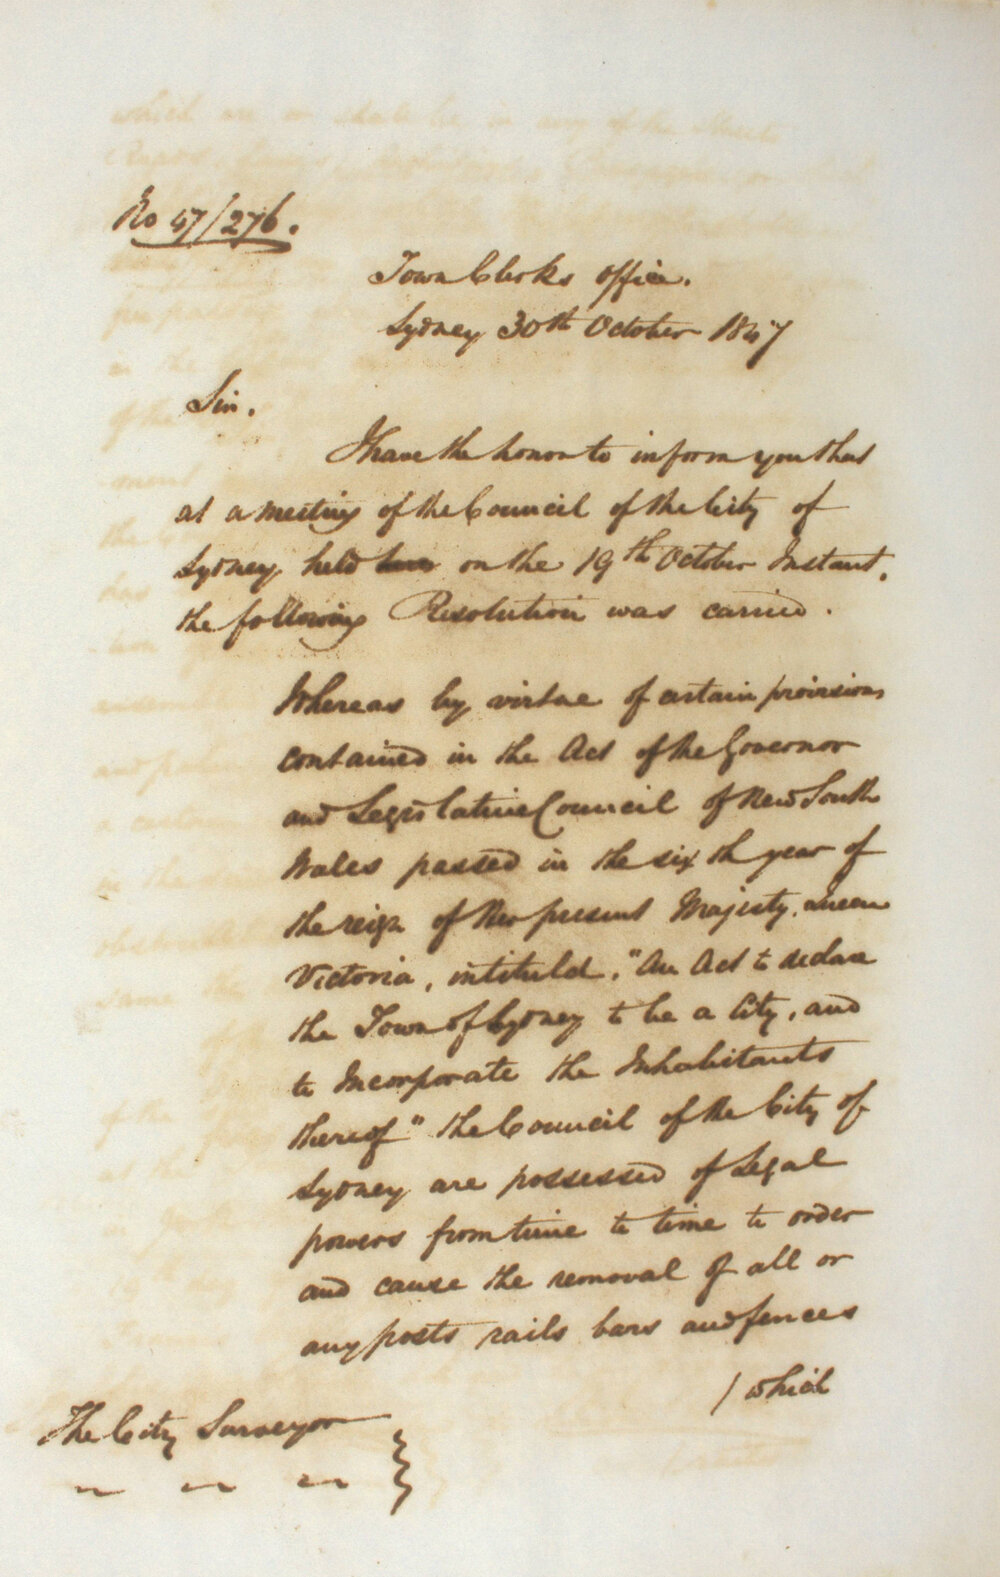 No 47/276.
Town Clerks office.
Sydney 30th October 1847
Sir.
I have the honor to inform you that
at a meeting of the Council of the City of
Sydney held on the 19th October Instant,
the following Resolution was carried.
Whereas by virtue of certain provisions
contained in the Act of the Governor
and Legislative Council of New South
Wales passed in the sixth year of
the reign of Her present Majesty, Queen
Victoria, intituled, "An Act to declare
the Town of Sydney to be a City, and
to Incorporate the Inhabitants
thereof" the Council of the City of
Sydney are possessed of Legal
powers from time to time to order
and cause the removal of all or
any posts rails bars and fences
/ which
The City Surveyor